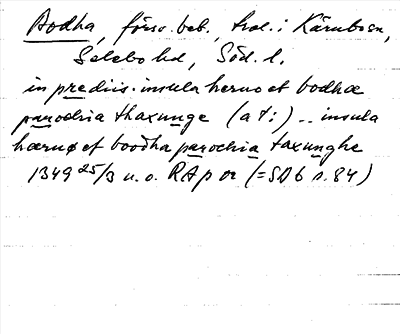 Bodha, försv. beb., trol. i Kärnbo sn,
Selebo hd, Söd. l.
in prediis. insula herno et bodhæ
parochia thaxunge (at:) .. insula
hærnø et boodha parochia taxunghe
1349 25/3 u. o. RAp or (= SD 6 s. 84)